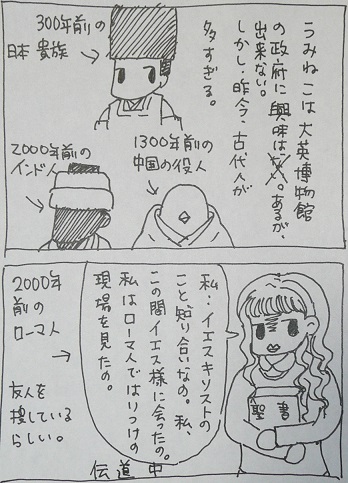 うみねこは大英博物館
の政府に興味はない。あるが、
出来ない。
しかし、昨今、古代人が
多すぎる。
300年前の
日本貴族
1300年前の
中国の役人
2000年前の
インド人
私、イエスキリストの
こと、知り合いなの。私、
この間イエス様に会ったの。
私はローマ人ではりつけの
現場を見たの。
聖書
2000年
前の
ローマ人
友人を
捜している
らしい。
伝道中